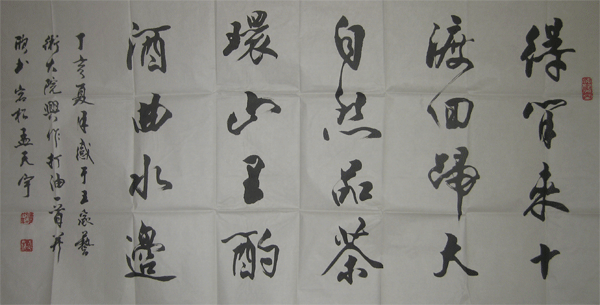 得閒来十
渡回歸大
自然品茶
環山里酌
酒曲水邊
丁亥夏月感于王家藝
術大院興作打油一首并
书岩松孟天宇